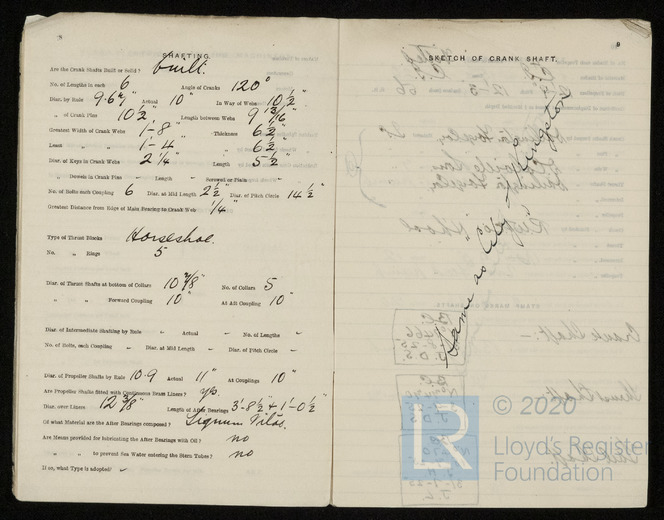 8
SHAFTING.
Are the Crank Shafts Built or Solid? Built.
No. of Lengths in each 6 Angle of Cranks 120°
Diar. by Rule 9.67" Actual 10" In Way of Webs 10 1/2"
„ of Crank Pins 10 1/2" Length between Webs 9 13/16"
Greatest Width of Crank Webs 1'-8" Thickness 6 1/2"
Least „ „ 1'-4" „ 6 1/2"
Diar. of Keys in Crank Webs 2 1/4" Length 5 1/2"
„ Dowels in Crank Pins - Length - Screwed or Plain -
No. of Bolts each Coupling 6 Diar. at Mid Length 2 1/2" Diar. of Pitch Circle 14 1/2"
Greatest Distance from Edge of Main Bearing to Crank Web 1/4"
Type of Thrust Blocks Horseshoe.
No. „ Rings 5
Diar. of Thrust Shafts at bottom of Collars 10 7/8" No. of Collars 5
„ „ Forward Coupling 10" At Aft Coupling 10"
Diar. of Intermediate Shafting by Rule - Actual - No. of Lengths -
No. of Bolts, each Coupling - Diar. at Mid Length - Diar. of Pitch Circle -
Diar. of Propeller Shafts by Rule 10.9 Actual 11" At Couplings 10"
Are Propeller Shafts fitted with Continuous Brass Liners? yes
Diar. over Liners 12 3/8" Length of After Bearings 3'-8 1/2" + 1'-0 1/2"
Of what Material are the After Bearings composed? Lignum Vitae.
Are Means provided for lubricating the After Bearings with Oil? no
„ „ to prevent Sea Water entering the Stern Tubes? no
If so, what Type is adopted? -
9
SKETCH OF CRANK SHAFT.
Same as City of Kingston
LR
© 2020
Lloyd's Register
Foundation